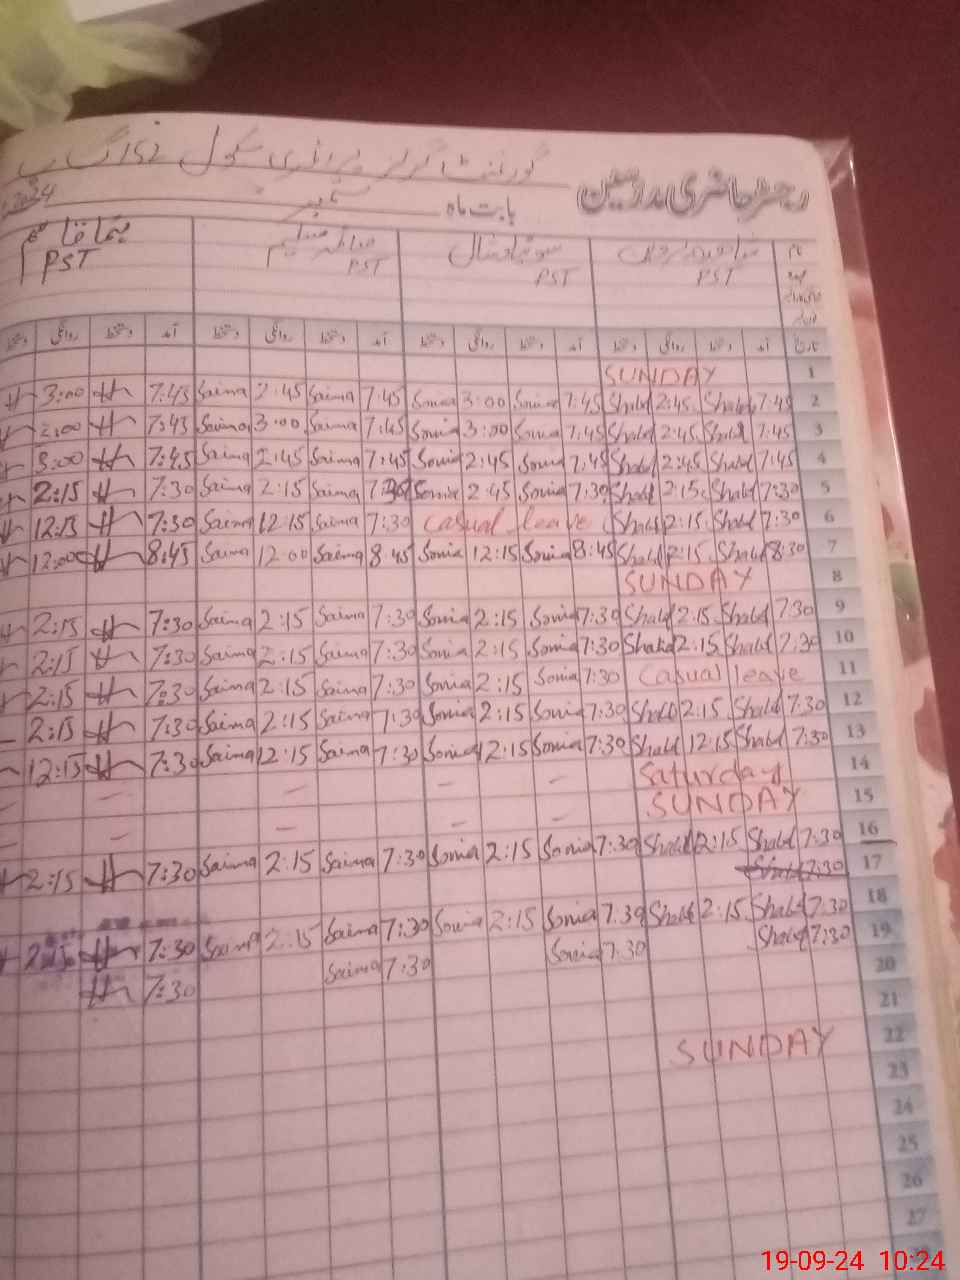 گورنمنٹ گرلز پرائمری سکول 152 گ ب
رجسٹر حاضری مدرسین
بابت ماہ ستمبر 2024
نام
PST PST PST PST
عہدہ
تاریخ آمد دستخط روانگی دستخط آمد دستخط روانگی دستخط آمد دستخط روانگی دستخط آمد دستخط روانگی دستخط
SUNDAY 1
3:00 7:45 Saima 2:45 Saima 7:45 Sonia 3:00 Sonia 7:45 Shahd 2:45 Shahd 7:45 2
2:00 7:45 Saima 3:00 Saima 7:45 Sonia 3:00 Sonia 7:45 Shahd 2:45 Shahd 7:45 3
3:00 7:45 Saima 2:45 Saima 7:45 Sonia 2:45 Sonia 7:45 Shahd 2:45 Shahd 7:45 4
2:15 7:30 Saima 2:15 Saima 7:30 Sonia 2:45 Sonia 7:30 Shahd 2:15 Shahd 7:30 5
12:15 7:30 Saima 12:15 Saima 7:30 Casual leave Shahd 2:15 Shahd 7:30 6
12:00 8:45 Saima 12:00 Saima 8:45 Sonia 12:15 Sonia 8:45 Shahd 2:15 Shahd 8:30 7
SUNDAY 8
2:15 7:30 Saima 2:15 Saima 7:30 Sonia 2:15 Sonia 7:30 Shahd 2:15 Shahd 7:30 9
2:15 7:30 Saima 2:15 Saima 7:30 Sonia 2:15 Sonia 7:30 Shahd 2:15 Shahd 7:30 10
2:15 7:30 Saima 2:15 Saima 7:30 Sonia 2:15 Sonia 7:30 Casual leave 11
2:15 7:30 Saima 2:15 Saima 7:30 Sonia 2:15 Sonia 7:30 Shahd 2:15 Shahd 7:30 12
12:15 7:30 Saima 12:15 Saima 7:30 Sonia 12:15 Sonia 7:30 Shahd 12:15 Shahd 7:30 13
— — — — Saturday 14
— — — — SUNDAY 15
2:15 7:30 Saima 2:15 Saima 7:30 Sonia 2:15 Sonia 7:30 Shahd 2:15 Shahd 7:30 16
Shahd 7:30 17
2:15 7:30 Saima 2:15 Saima 7:30 Sonia 2:15 Sonia 7:30 Shahd 2:15 Shahd 7:30 18
7:30 Saima 7:30 Sonia 7:30 Shahd 7:30 19
20
21
SUNDAY 22
23
24
25
26
27
19-09-24 10:24